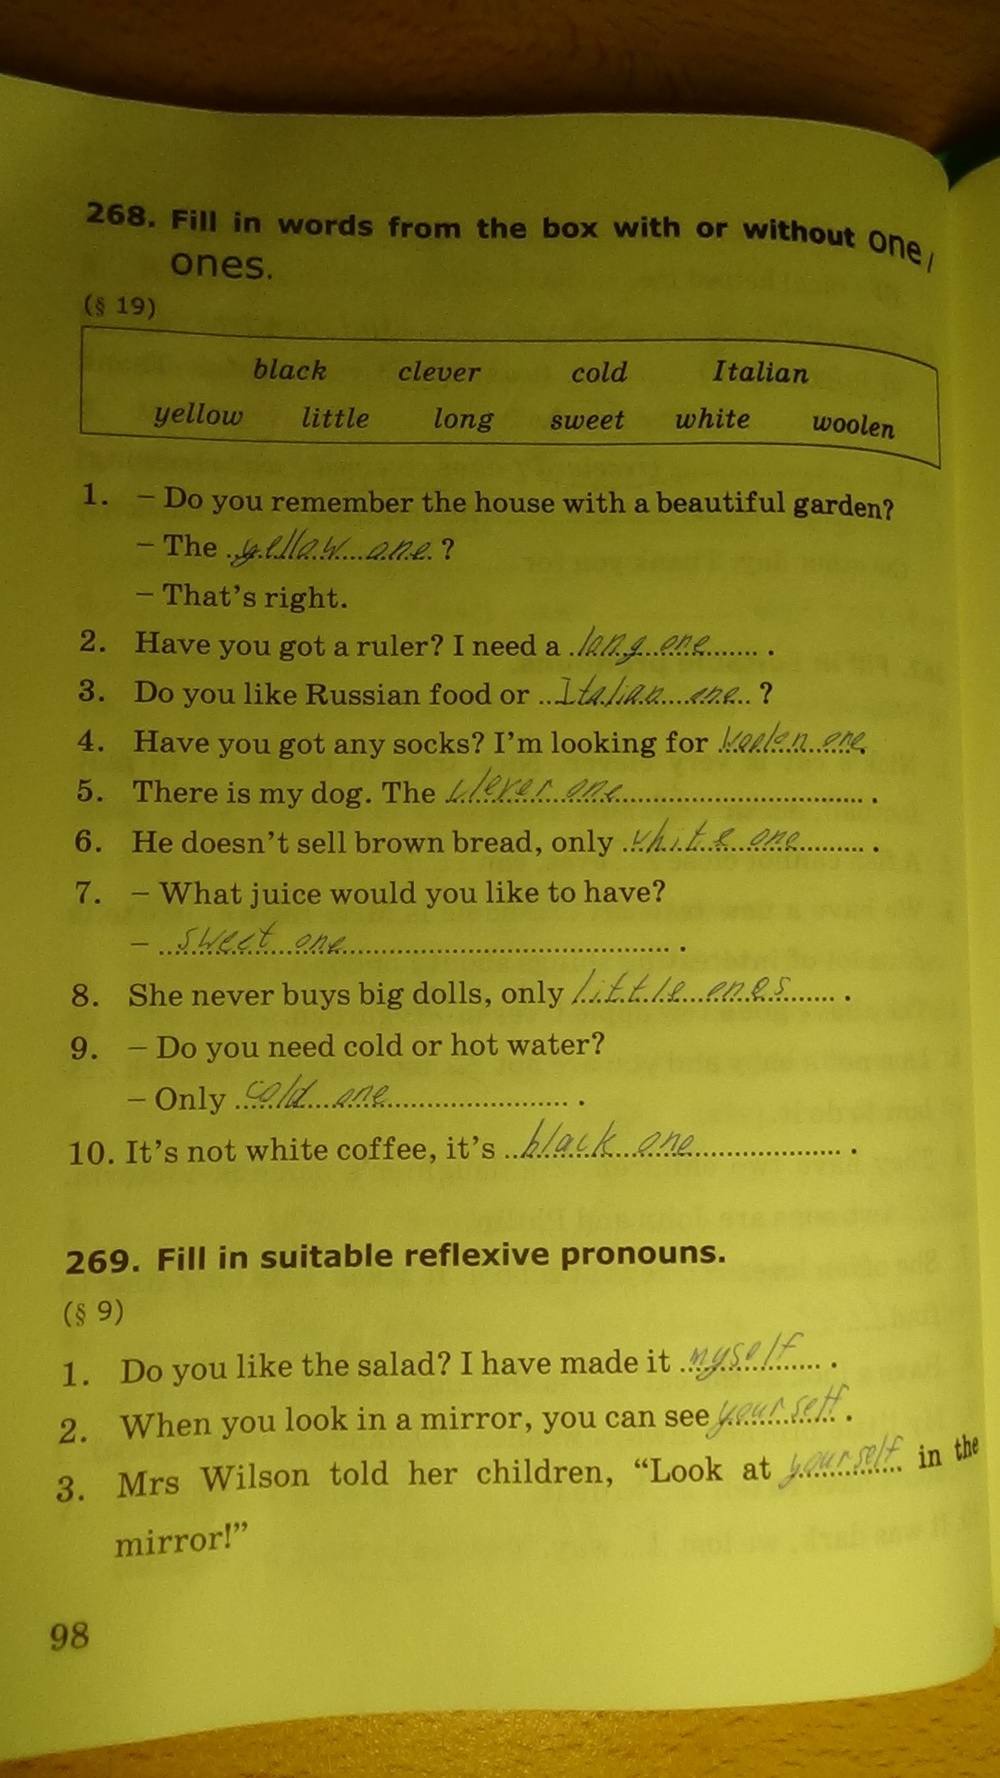 268. Fill in words from the box with or without one/
ones.
(§ 19)
black clever cold Italian
yellow little long sweet white woolen
1. – Do you remember the house with a beautiful garden?
– The yellow one ?
– That's right.
2. Have you got a ruler? I need a long one .
3. Do you like Russian food or Italian one ?
4. Have you got any socks? I'm looking for woolen one.
5. There is my dog. The clever one .
6. He doesn't sell brown bread, only white one .
7. – What juice would you like to have?
– sweet one .
8. She never buys big dolls, only little ones .
9. – Do you need cold or hot water?
– Only cold one .
10. It's not white coffee, it's black one .
269. Fill in suitable reflexive pronouns.
(§ 9)
1. Do you like the salad? I have made it myself .
2. When you look in a mirror, you can see yourself .
3. Mrs Wilson told her children, “Look at yourself in the
mirror!”
98